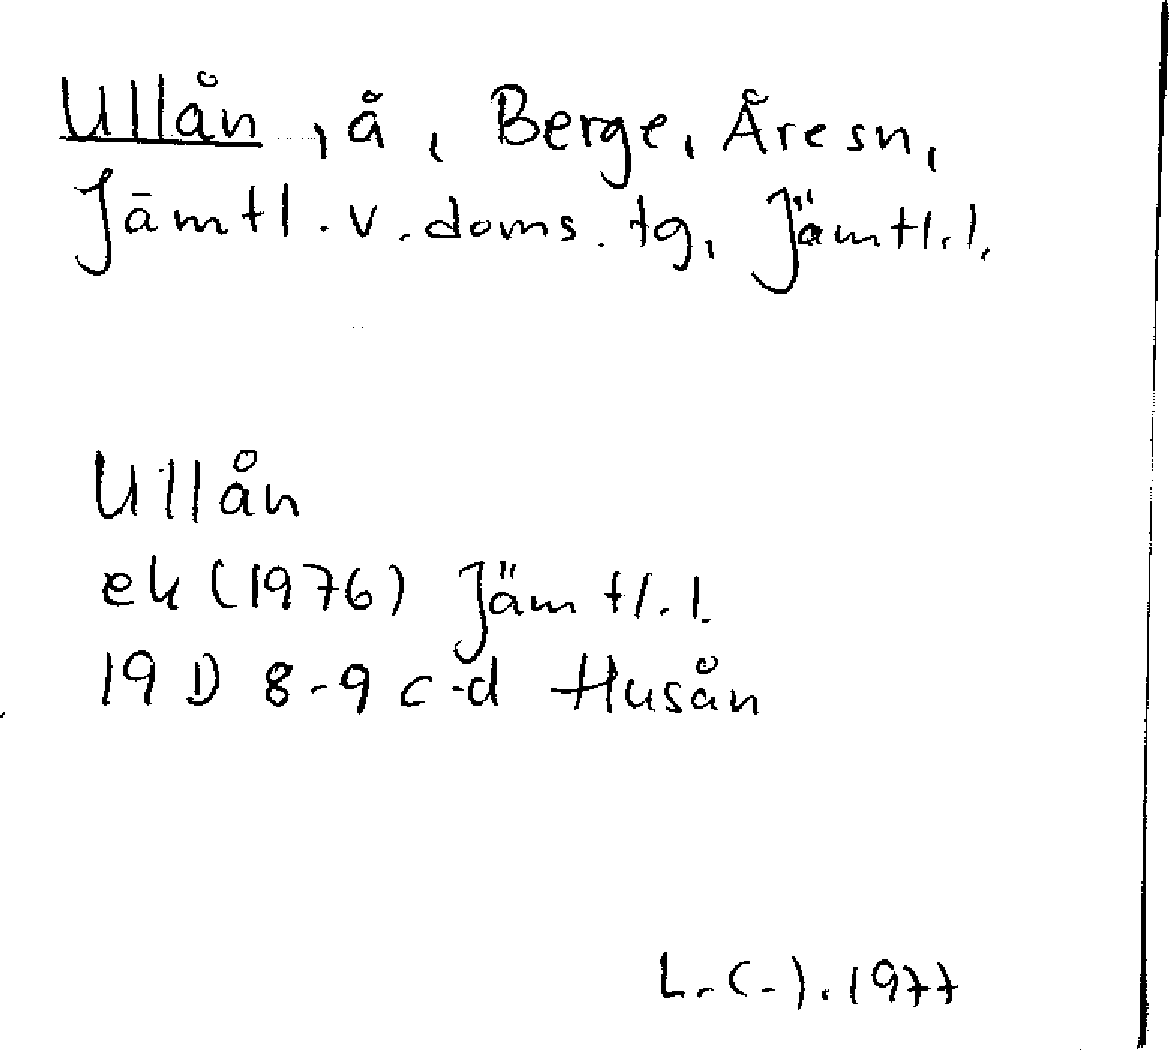 Ullån, å, Berge, Åre sn,
Jämtl. v. doms. tg, Jämtl. l.
Ullån
ek (1976) Jämtl. l.
19 D 8-9 c-d Husån
L. (-). 1977